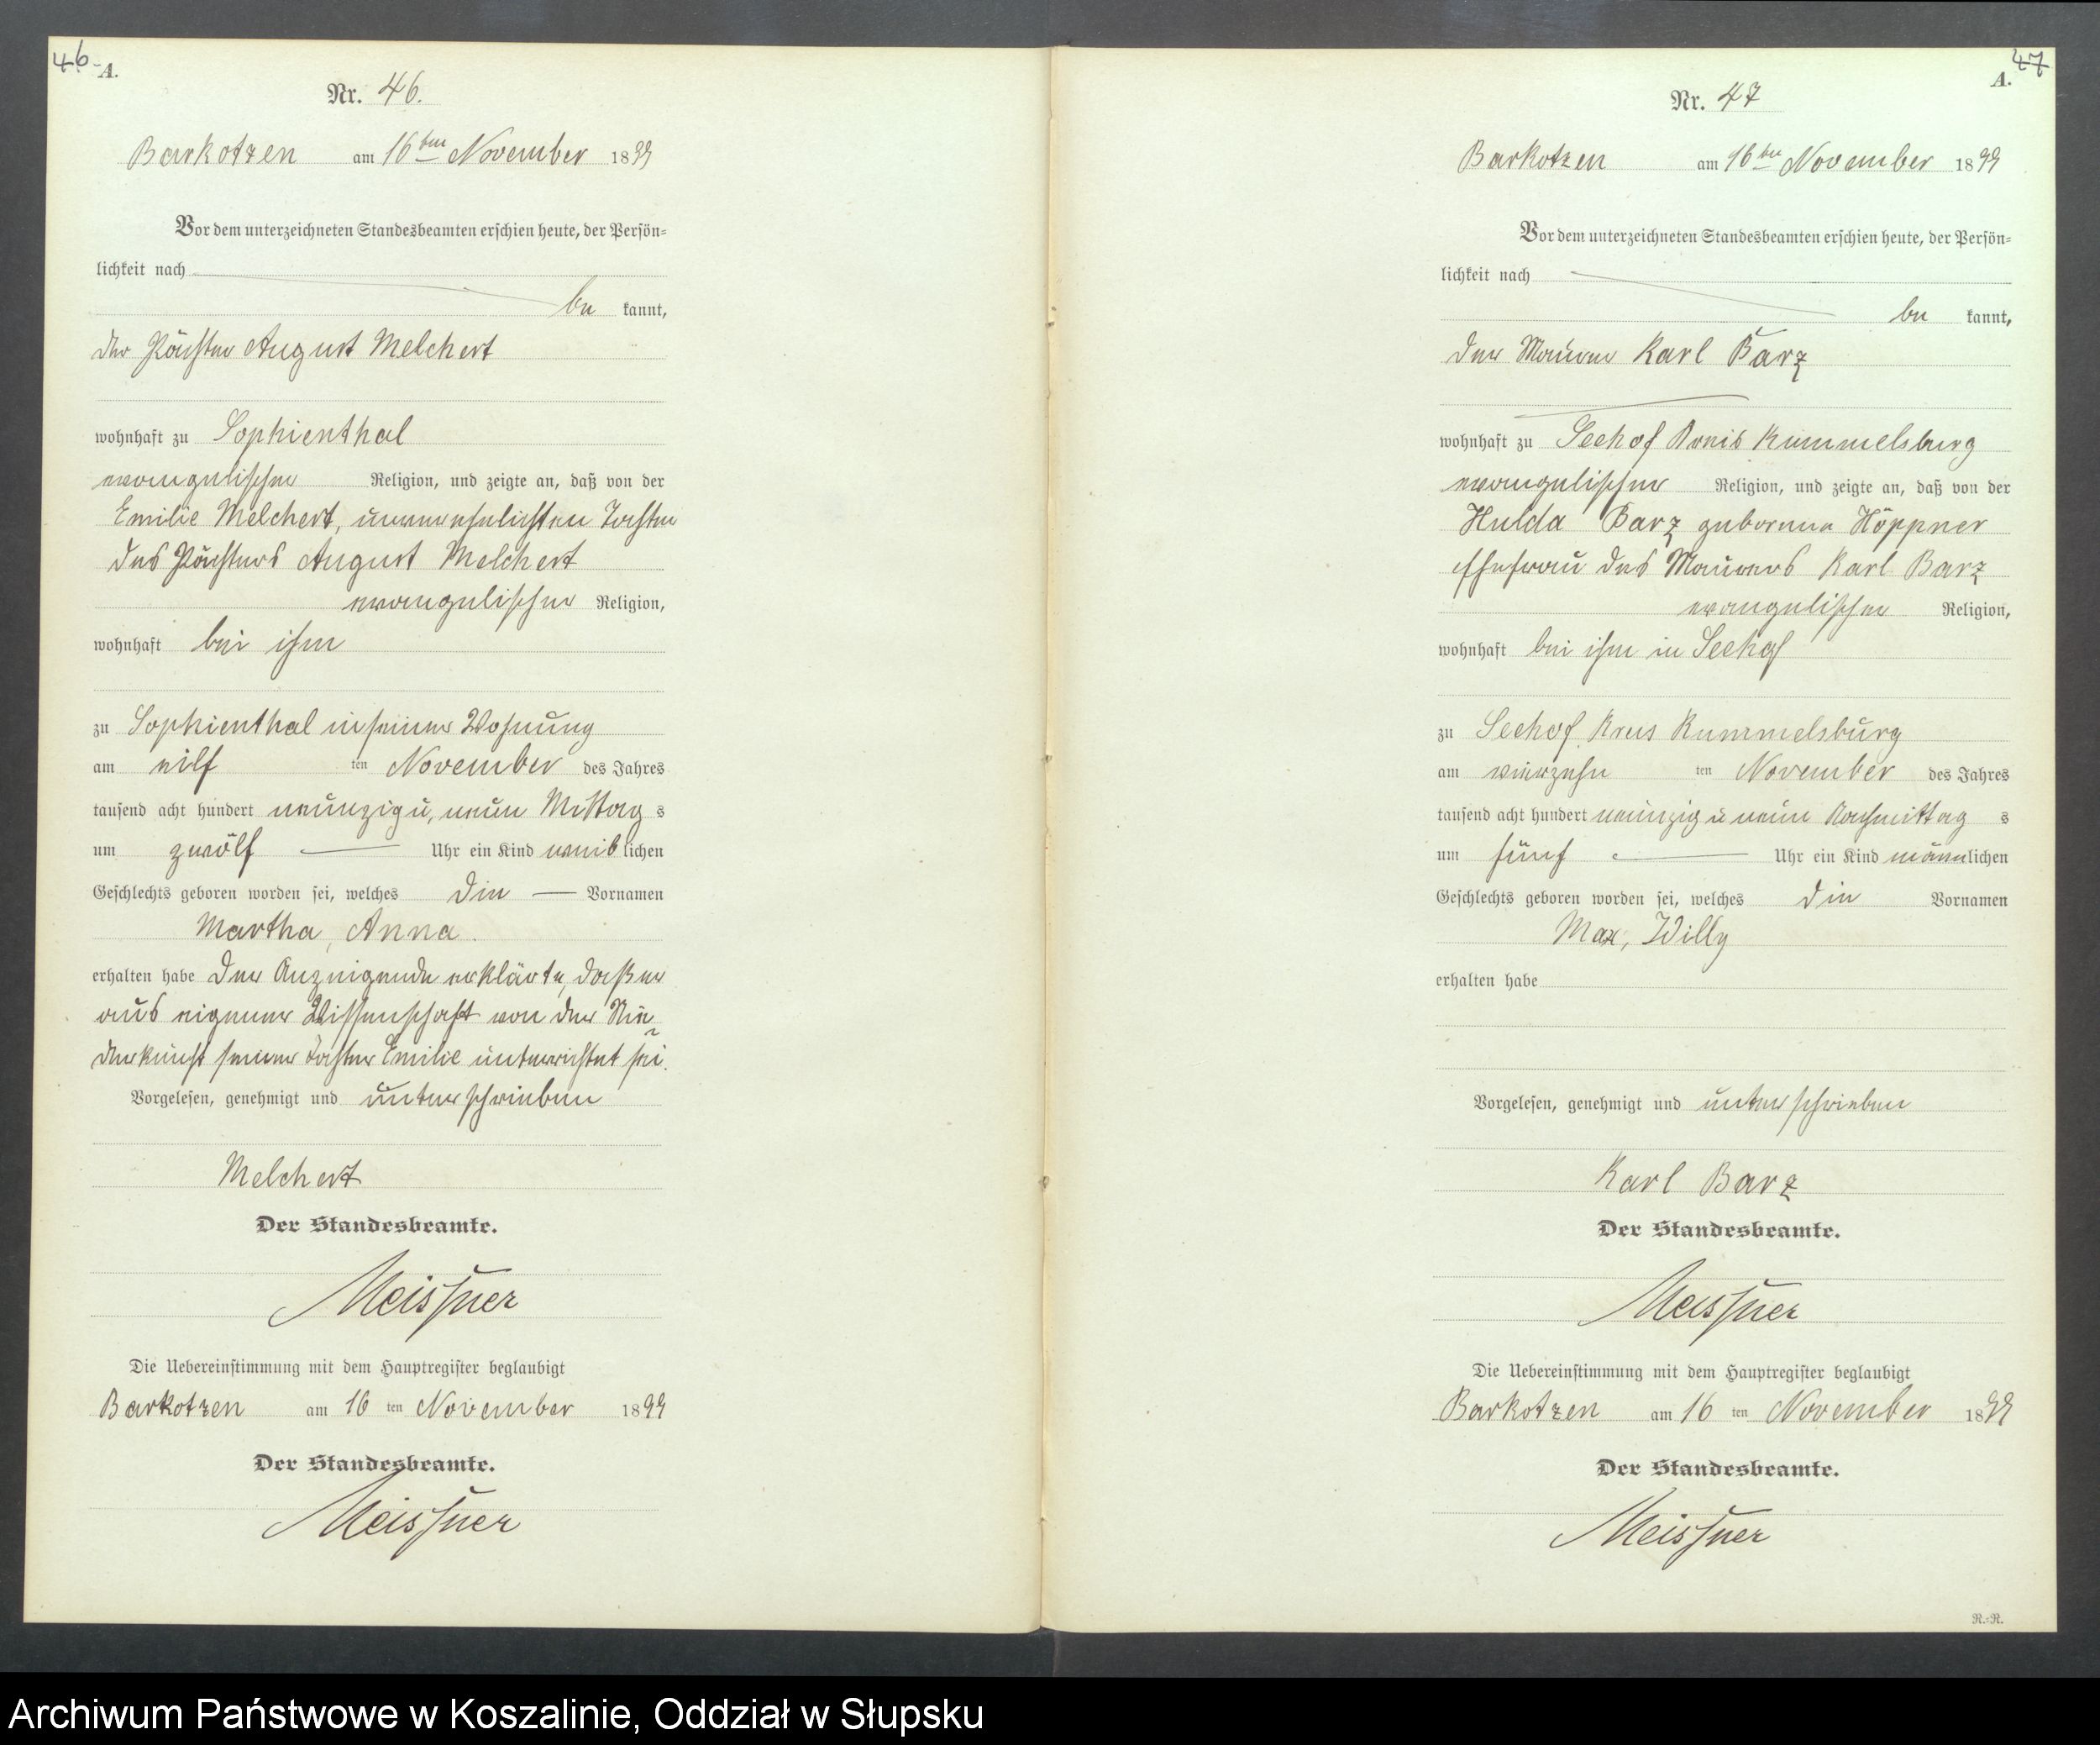 46
A.
Nr. 46.
Barkotzen am 16ten November 1899
Vor dem unterzeichneten Standesbeamten erschien heute, der Persön=
lichkeit nach
be kannt,
der Pächter August Melchert
wohnhaft zu Sophienthal
evangelischer Religion, und zeigte an, daß von der
Emilie Melchert, unverehelichten Tochter
des Pächters August Melchert
evangelischer Religion,
wohnhaft bei ihm
zu Sophienthal in seiner Wohnung
am eilf ten November des Jahres
tausend acht hundert neunzig u, neun Mittag s
um zwölf Uhr ein Kind weiblichen
Geschlechts geboren worden sei, welches die Vornamen
Martha, Anna.
erhalten habe Der Anzeigende erklärte, daß er
aus eigener Wissenschaft von der Nie
derkunft seiner Tochter Emilie unterrichtet sei.
Vorgelesen, genehmigt und unterschrieben
Melchert
Der Standesbeamte.
Meissner
Die Uebereinstimmung mit dem Hauptregister beglaubigt
Barkotzen am 16 ten November 1899
Der Standesbeamte.
Meissner
47
A.
Nr. 47
Barkotzen am 16ten November 1899
Vor dem unterzeichneten Standesbeamten erschien heute, der Persön=
lichkeit nach
be kannt,
der Maurer Karl Barz
wohnhaft zu Seehof Kreis Rummelsburg
evangelischer Religion, und zeigte an, daß von der
Hulda Barz geborene Höppner
Ehefrau des Maurers Karl Barz
evangelischer Religion,
wohnhaft bei ihm in Seehof
zu Seehof Kreis Rummelsburg
am vierzehn ten November des Jahres
tausend acht hundert neunzig u neun Nachmittag s
um fünf Uhr ein Kind männlichen
Geschlechts geboren worden sei, welches die Vornamen
Max, Willy
erhalten habe
Vorgelesen, genehmigt und unterschrieben
Karl Barz
Der Standesbeamte.
Meissner
Die Uebereinstimmung mit dem Hauptregister beglaubigt
Barkotzen am 16 ten November 1899
Der Standesbeamte.
Meissner
R.=R.
Archiwum Państwowe w Koszalinie, Oddział w Słupsku